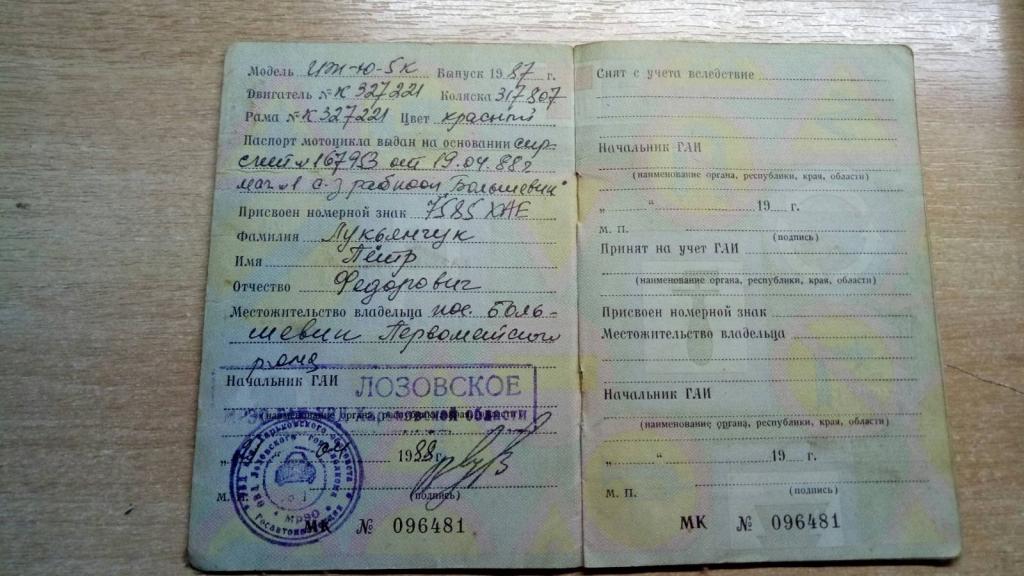 Модель ИЖ-Ю-5К Выпуск 1987 г.
Двигатель № К 327221 Коляска 317807
Рама № К 327221 Цвет красный
Паспорт мотоцикла выдан на основании
№ 167953 от 19.04.88г
маг №1 "Большевик"
Присвоен номерной знак 7585 ХАЕ
Фамилия Лукьянчук
Имя Пётр
Отчество Федорович
Местожительство владельца пос. Боль-
шевик Первомайского
р-она
Начальник ГАИ ЛОЗОВСКОЕ
Харьковской области
„ “ 1988 г.
(подпись)
М. П.
МРЭО
МК № 096481
Снят с учета вследствие
Начальник ГАИ
(наименование органа, республики, края, области)
„ “ 19 г.
М. П.
(подпись)
Принят на учет ГАИ
(наименование органа, республики, края, области)
Присвоен номерной знак
Местожительство владельца
Начальник ГАИ
(наименование органа, республики, края, области)
„ “ 19 г.
М. П. (подпись)
МК № 096481